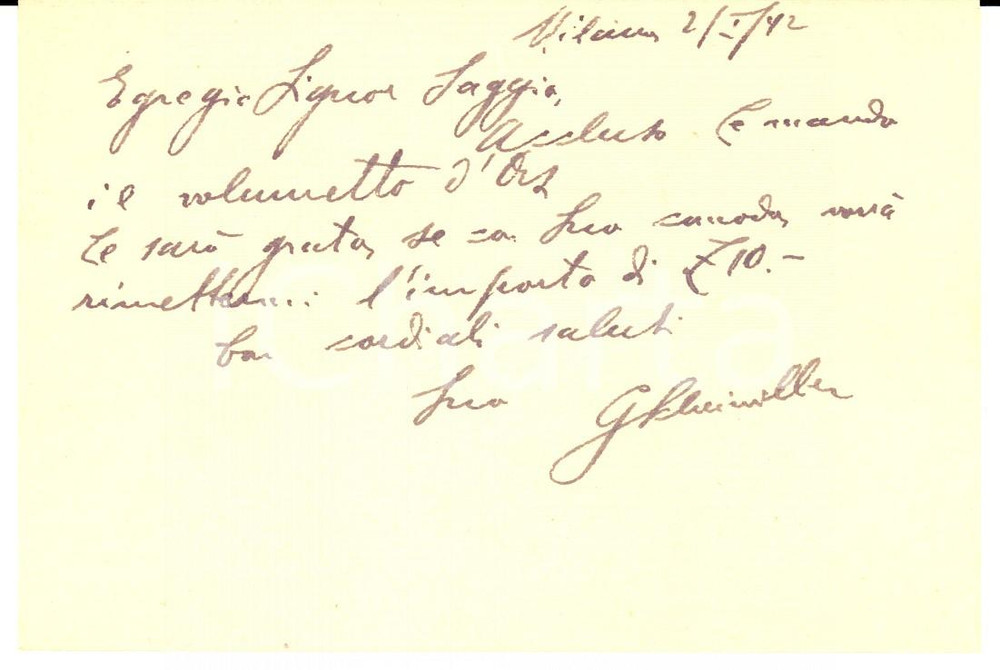 Milano 2/I/42
Egregio Signor Saggio,
Accluso Le mando
il volumetto d'Ors
Le sarò grato, se con Suo comodo, vorrà
rimettermi l'importo di £ 10.-
Con cordiali saluti
Suo GScheiwiller